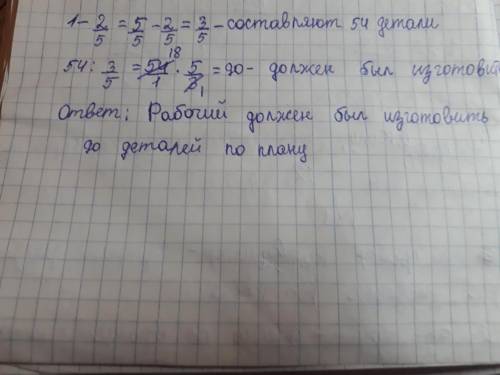 1 - 2/5 = 5/5 - 2/5 = 3/5 - составляют 54 детали
54 : 3/5 = 54 18/1 · 5/3 1 = 90 - должен был изготовить
Ответ: Рабочий должен был изготовить
90 деталей по плану